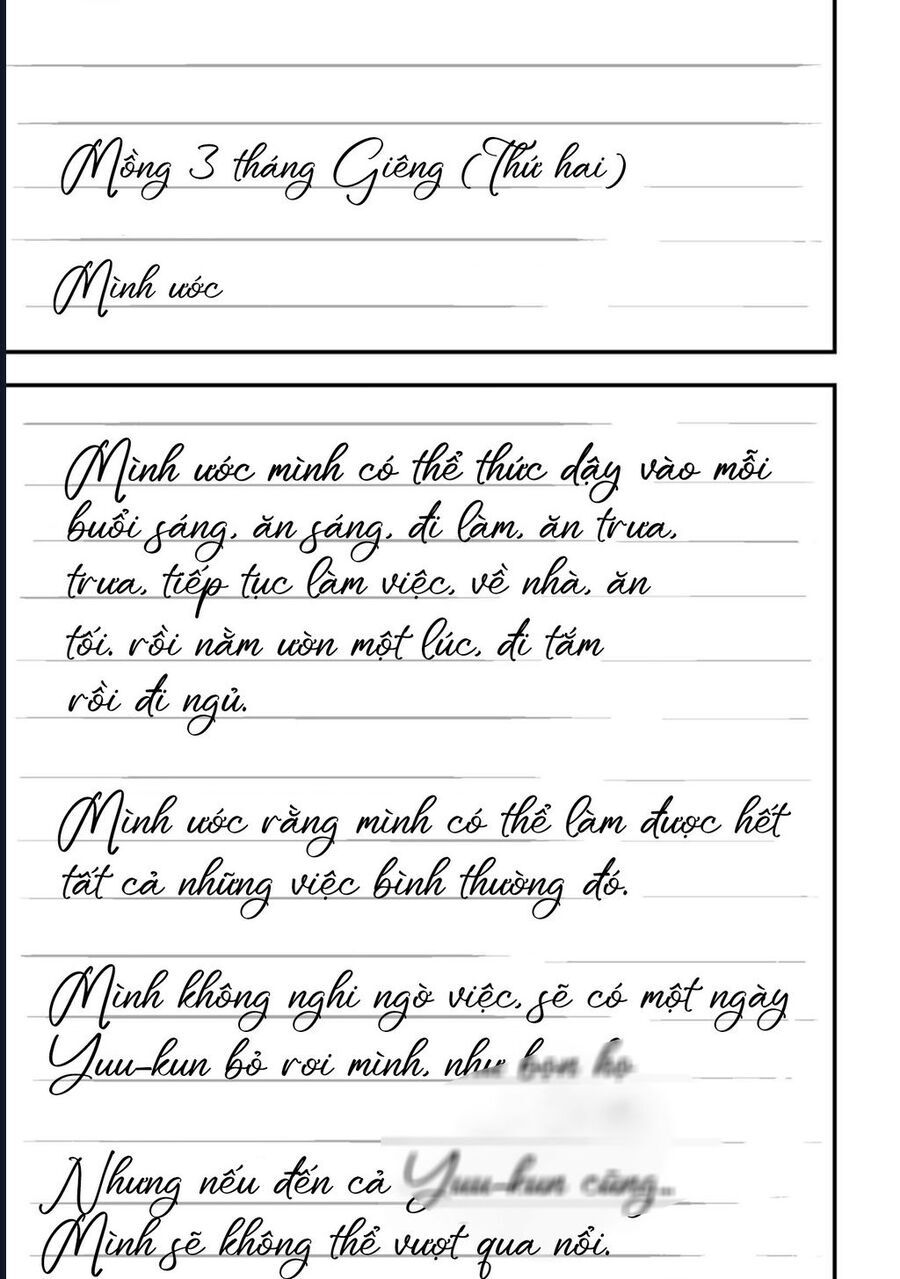 Mồng 3 tháng Giêng (Thứ hai)
Mình ước
Mình ước mình có thể thức dậy vào mỗi
buổi sáng, ăn sáng, đi làm, ăn trưa,
trưa, tiếp tục làm việc, về nhà, ăn
tối, rồi nằm ườn một lúc, đi tắm
rồi đi ngủ.
Mình ước rằng mình có thể làm được hết
tất cả những việc bình thường đó.
Mình không nghi ngờ việc, sẽ có một ngày
Yuu-kun bỏ rơi mình, như bọn họ
Nhưng nếu đến cả Yuu-kun cũng...
Mình sẽ không thể vượt qua nổi.